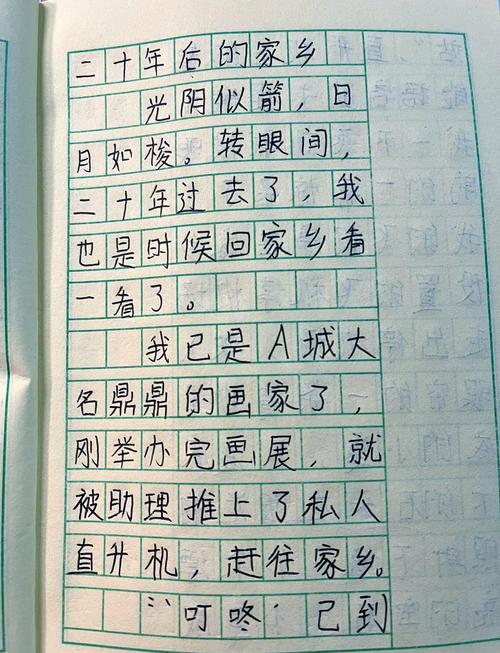 二十年后的家乡
光阴似箭，日
月如梭。转眼间，
二十年过去了，我
也是时候回家乡看
一看了。
我已是A城大
名鼎鼎的画家了，
刚举办完画展，就
被助理推上了私人
直升机，赶往家乡。
“叮咚，已到